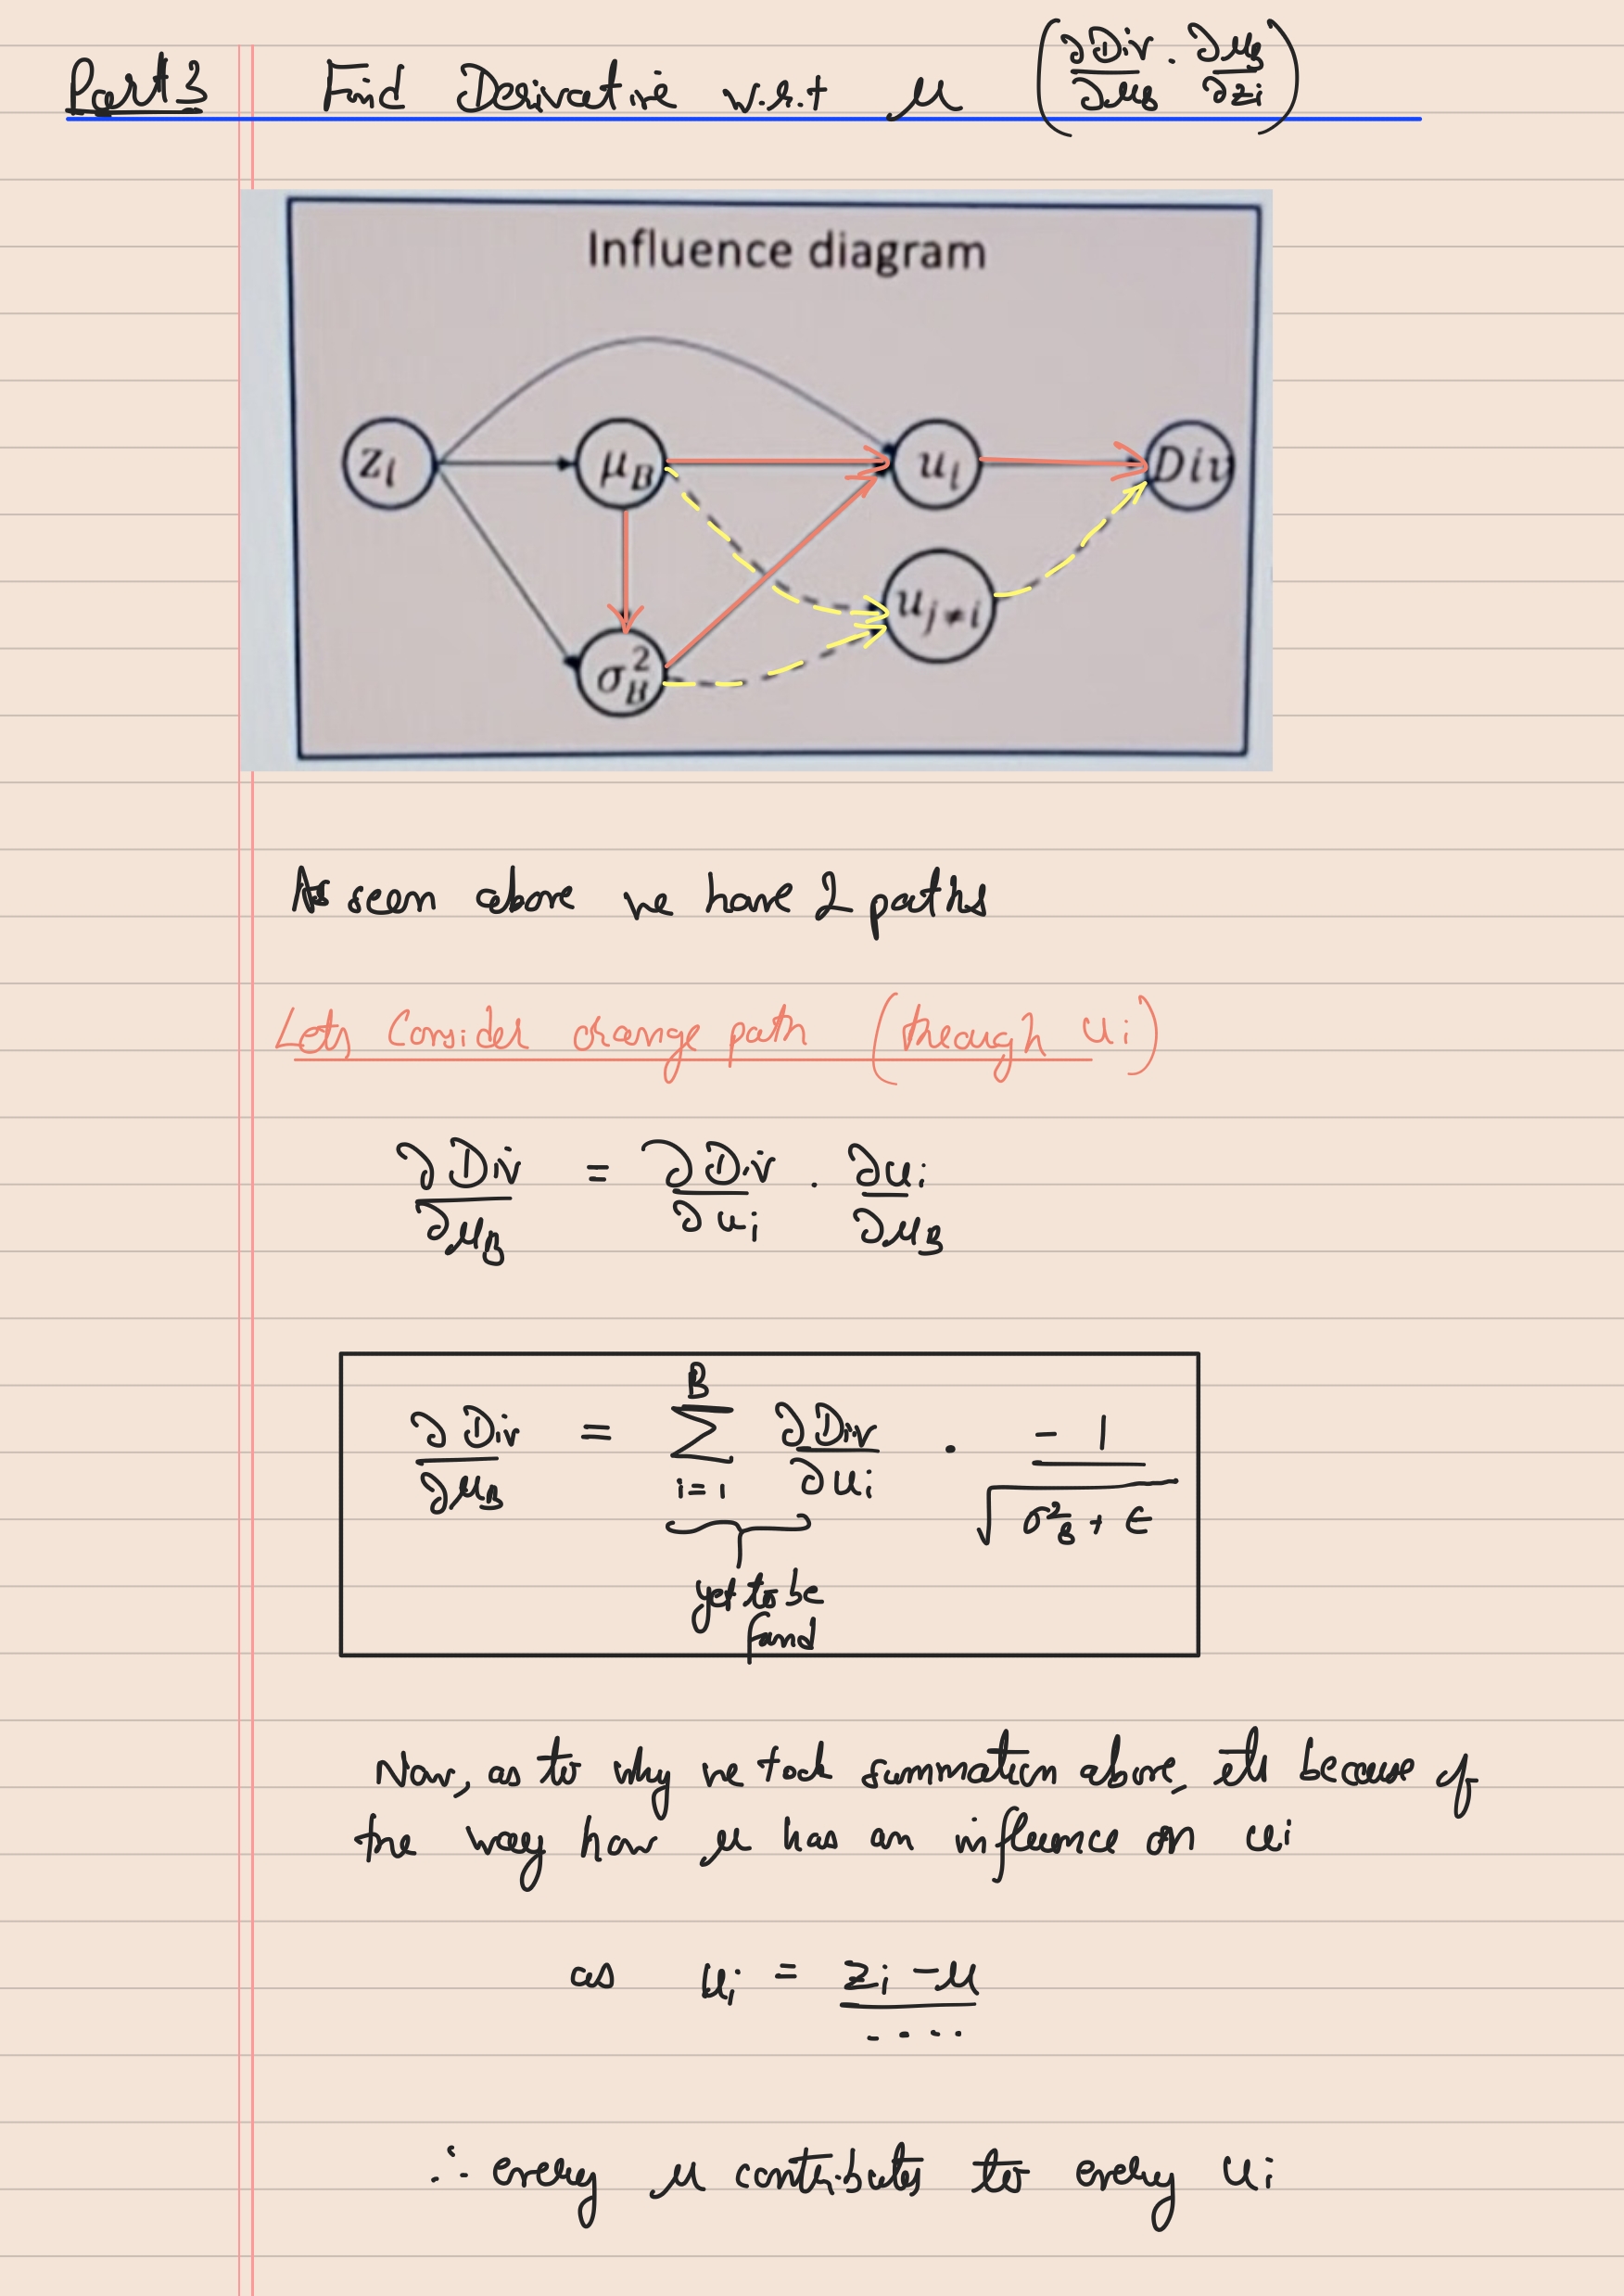 Part 3 Find Derivative w.r.t μ (∂Div/∂μB . ∂μB/∂zi)
Influence diagram
zi μB ui Div
uj≠i
σ²B
As seen above we have 2 paths
Lets Consider orange path (through ui)
∂Div/∂μB = ∂Div/∂ui . ∂ui/∂μB
∂Div/∂μB = B∑i=1 ∂Div/∂ui . -1/√(σ²B + ϵ)
yet to be
found
Now, as to why we took summation above, its because of
the way how μ has an influence on ui
as ui = zi - μ / ....
∴ every μ contributes to every ui